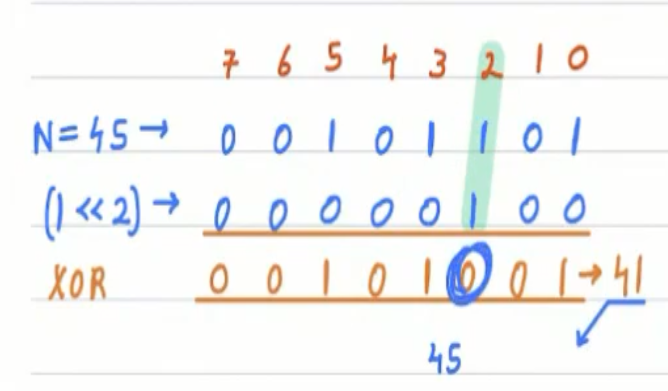 7 6 5 4 3 2 1 0
N=45→ 0 0 1 0 1 1 0 1
(1<<2)→ 0 0 0 0 0 1 0 0
XOR 0 0 1 0 1 0 0 1→41
45